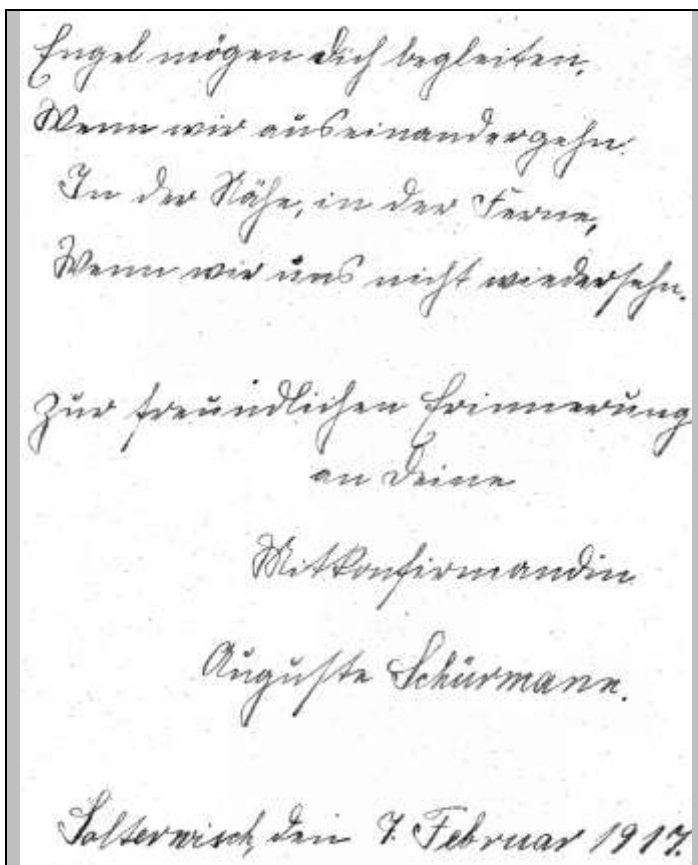 Engel mögen Dich begleiten,
Wenn wir auseinandergehn.
In der Nähe, in der Ferne,
Wenn wir uns nicht wiedersehn.
Zur freundlichen Erinnerung
an Deine
Mitkonfirmandin
Auguste Schürmann.
Solterwisch, den 7. Februar 1917.